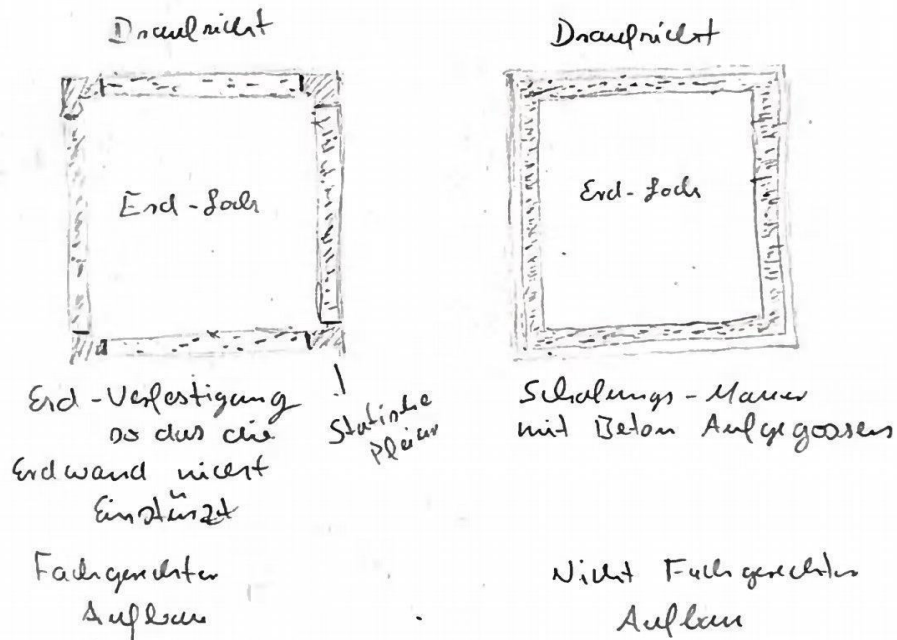 Draufsicht
Erd-Loch
Erd-Verfestigung
so das die
Erdwand nicht
Einstürzt
Statische
Pfeiler
Fachgerechter
Aufbau
Draufsicht
Erd-Loch
Schalungs-Mauer
mit Beton Aufgegossen
Nicht Fachgerechter
Aufbau